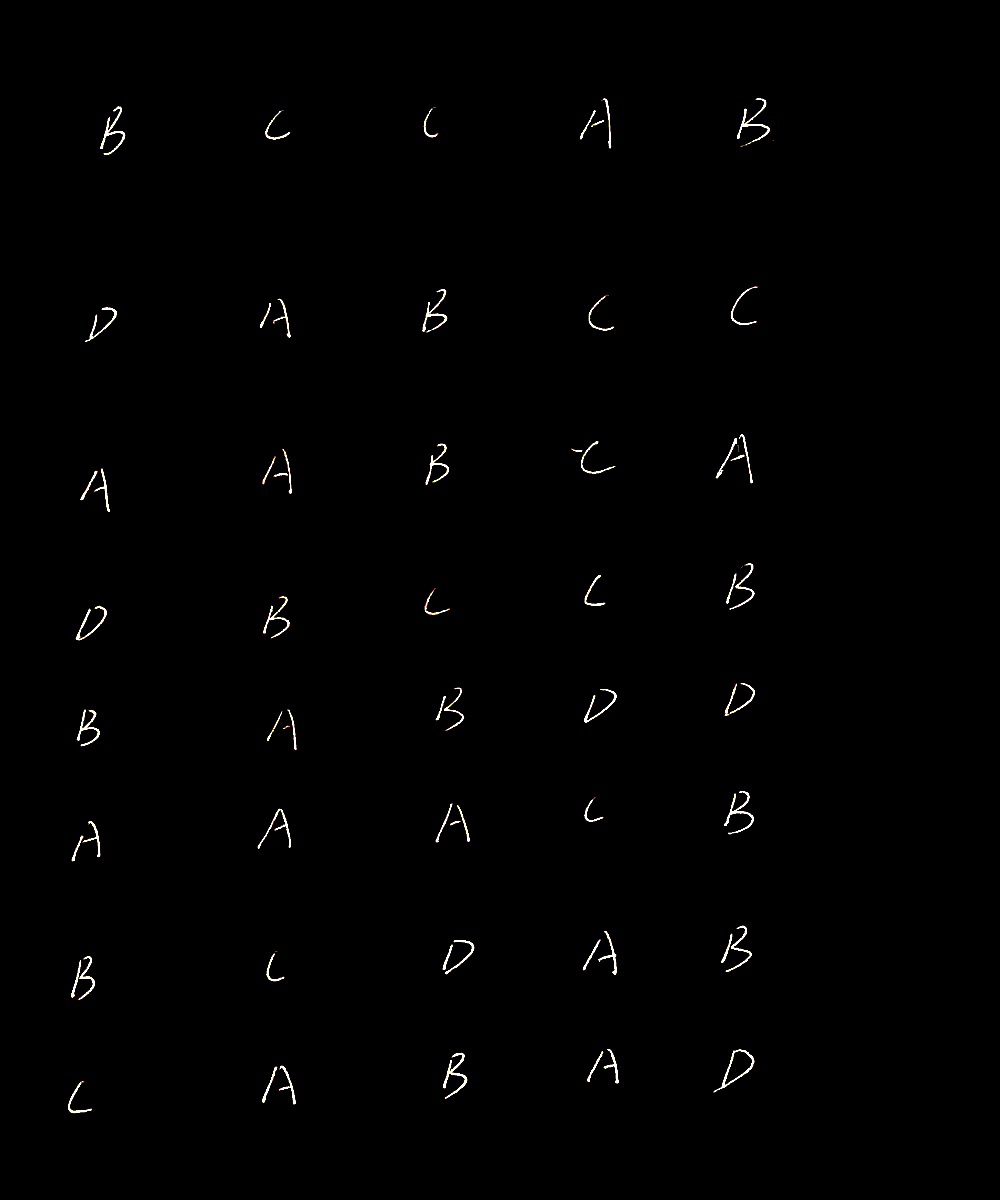 B C C A B
D A B C C
A A B C A
D B C C B
B A B D D
A A A C B
B C D A B
C A B A D